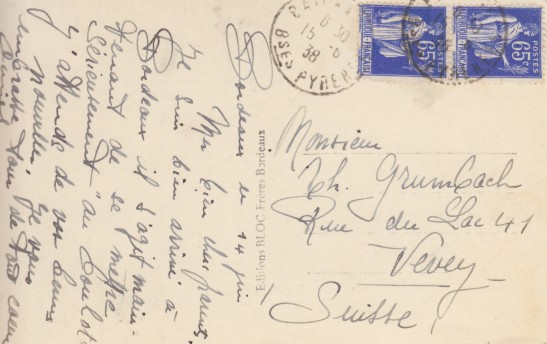 Bordeaux le 14 juin
Mes bien chers parents,
Je suis bien arrivé à
Bordeaux il s'agit main-
tenant de se mettre
sérieusement "au boulot"
J'attends de vos bonnes
nouvelles. Je vous
embrasse tous de tout coeur
Editions BLOC Frères Bordeaux
8 30
15 -6
38
BSES PYRENE
POSTES
65c
REPUBLIQUE FRANÇAISE
POSTES
65c
Monsieur
Th. Grumbach
Rue du Lac 41
Vevey
Suisse